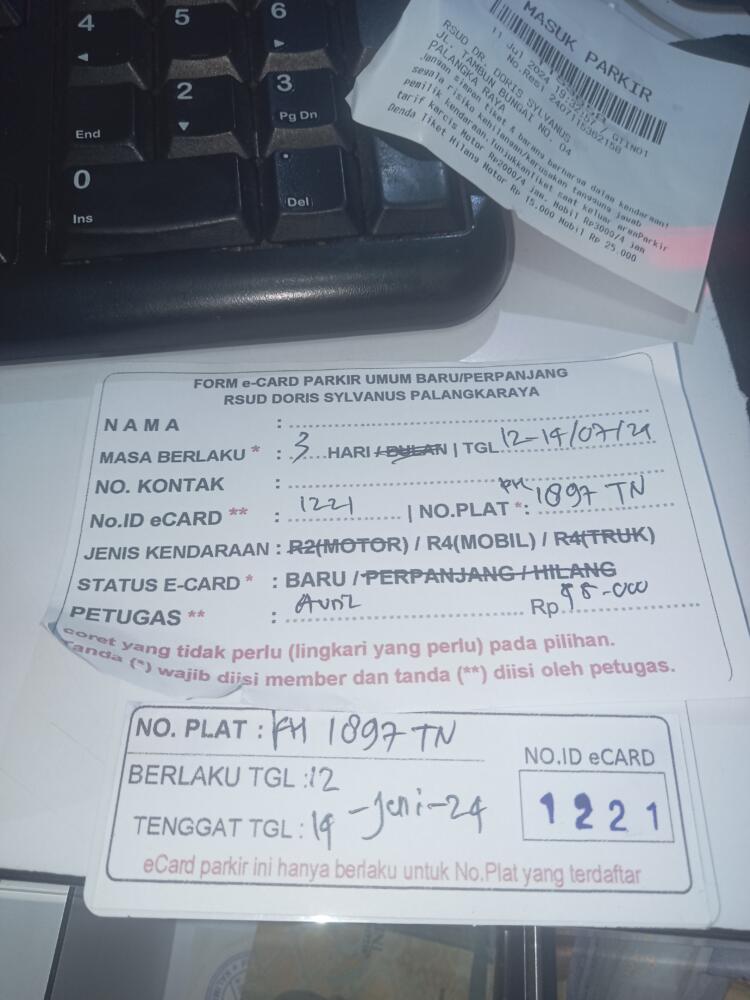 4
5
6
2
3
Pg Dn
End
0
Ins
.
Del
MASUK PARKIR
11 Jul 2024 19:32
No.Resi 2407115362158
RSUD DR. DORIS SYLVANUS
JL. TAMBUN BUNGAI NO. 04
PALANGKA RAYA
Jangan simpan tiket & barang berharga dalam kendaraan!
segala risiko kehilangan/kerusakan tanggung jawab
pemilik kendaraan, tunjukkan tiket saat keluar areaParkir
tarif karcis Motor Rp2000/4 jam, Mobil Rp3000/4 jam
Denda Tiket Hilang Motor Rp 15.000 Mobil Rp 25.000
FORM e-CARD PARKIR UMUM BARU/PERPANJANG
RSUD DORIS SYLVANUS PALANGKARAYA
NAMA :
MASA BERLAKU * : 3 HARI / BULAN | TGL 12-14/07/24
NO. KONTAK :
No.ID eCARD ** : 1221 | NO.PLAT *: KH 1897 TN
JENIS KENDARAAN : R2(MOTOR) / R4(MOBIL) / R4(TRUK)
STATUS E-CARD * : BARU / PERPANJANG / HILANG
PETUGAS ** : Rp
coret yang tidak perlu (lingkari yang perlu) pada pilihan.
Tanda (*) wajib diisi member dan tanda (**) diisi oleh petugas.
NO. PLAT : KH 1897 TN
BERLAKU TGL : 12
TENGGAT TGL : 14 - Juni - 24
NO.ID eCARD
1221
eCard parkir ini hanya berlaku untuk No.Plat yang terdaftar